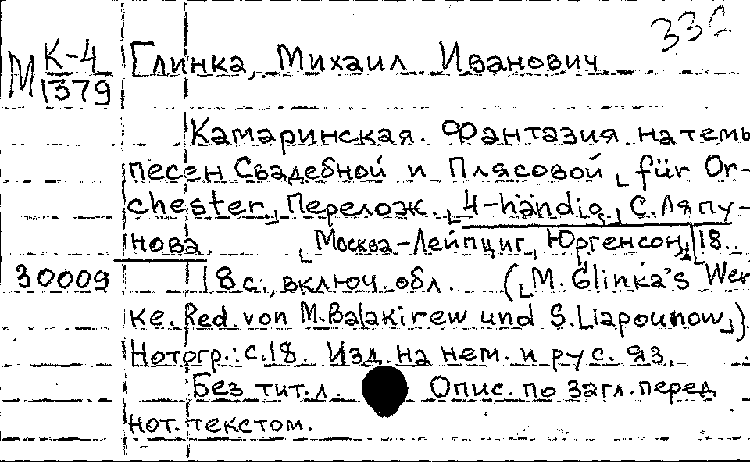 33
М К-4 Глинка, Михаил Иванович
1379
Камаринская. Фантазия на темы
песен Свадебной и Плясовой, für Or-
chester, Перелож. 4-händig, С. Ляпу-
нова. Москва-Лейпциг, Юргенсон, 18 .
30009 18 с., включ. обл. (M. Glinka's Wer
ke. Red. von M. Balakirew und S. Liapounow).
Нотогр.: с. 18. Изд. на нем. и рус. яз.
Без тит. л. Опис. по загл. перед
нот. текстом.